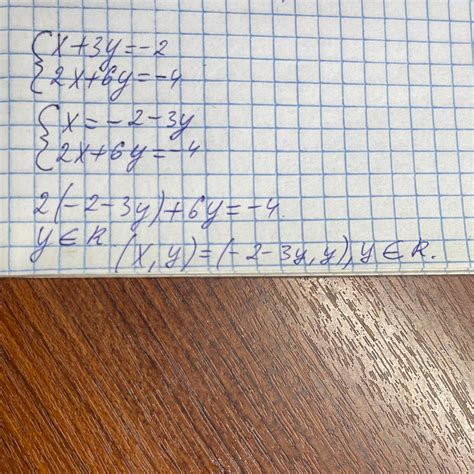 {x+3y=-2
{2x+6y=-4
{x=-2-3y
{2x+6y=-4
2(-2-3y)+6y=-4.
y∈R. (x,y)=(-2-3y,y), y∈R.